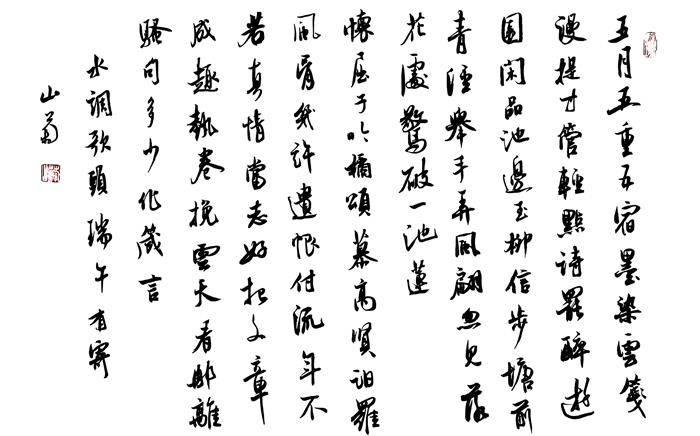 五月五重五宿墨染雲箋
漫提寸管輕點詩罷醉遊
園閑品池邊玉柳信步塘前
青徑舉手弄風翩忽見落
花處驚破一池蓮
懷屈子吟橘頌慕高賢汨羅
風骨幾許遺恨付流年不
若真情當志好把文章
成趣執卷挽雲天看那離
騷句多少作箴言
水調歌頭瑞午有寄
山菊